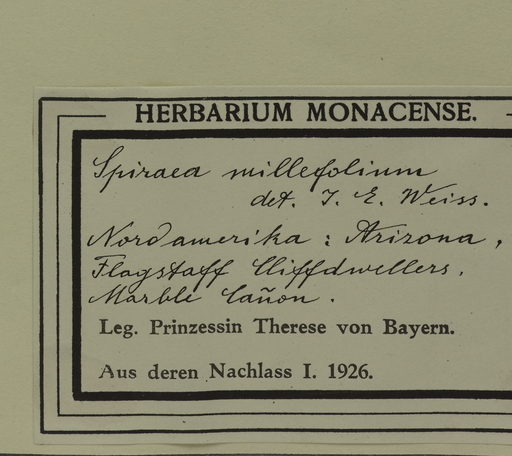 HERBARIUM MONACENSE.
Spiraea millefolium
det. J. E. Weiss.
Nordamerika : Arizona,
Flagstaff Cliffdwellers.
Marble Cañon.
Leg. Prinzessin Therese von Bayern.
Aus deren Nachlass I. 1926.